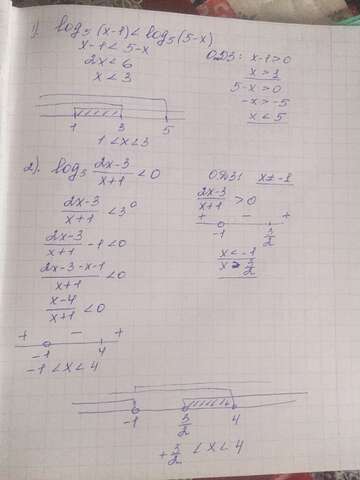 1) log₅(x-1) < log₅(5-x)
x-1 < 5-x
2x < 6
x < 3
О.D.З: x-1>0
x>1
5-x>0
-x>-5
x<5
1 3 5
1 < x < 3
2). log₃ (2x-3)/(x+1) < 0
(2x-3)/(x+1) < 3⁰
(2x-3)/(x+1) - 1 < 0
(2x-3-x-1)/(x+1) < 0
(x-4)/(x+1) < 0
+ - +
-1 4
-1 < x < 4
О.D.З: x≠-1
(2x-3)/(x+1) > 0
+ - +
-1 3/2
x < -1
x > 3/2
-1 3/2 4
+ 3/2 < x < 4